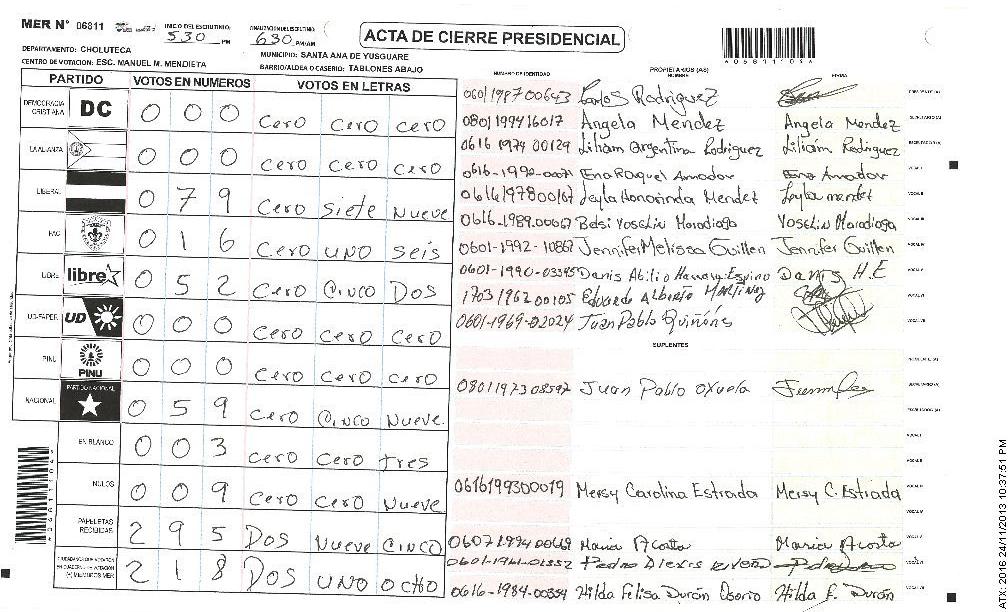 MER N° 06811 INICIO DEL ESCRUTINIO: 530 PM FINALIZACION DEL ESCRUTINIO: 630 PM/AM
ACTA DE CIERRE PRESIDENCIAL
DEPARTAMENTO: CHOLUTECA MUNICIPIO: SANTA ANA DE YUSGUARE
CENTRO DE VOTACION: ESC. MANUEL M. MENDIETA BARRIO/ALDEA O CASERIO: TABLONES ABAJO
PARTIDO VOTOS EN NUMEROS VOTOS EN LETRAS
DEMOCRACIA CRISTIANA DC 0 0 0 Cero Cero cero
LA ALIANZA 0 0 0 Cero Cero Cero
LIBERAL 0 7 9 Cero Siete Nueve
PAC 0 1 6 Cero UNO Seis
LIBRE libre 0 5 2 Cero CINCO DOS
UD-FAPER UD 0 0 0 Cero Cero Cero
PINU PINU 0 0 0 Cero Cero Cero
NACIONAL PARTIDO NACIONAL 0 5 9 Cero CINCO Nueve
EN BLANCO 0 0 3 Cero Cero tres
NULOS 0 0 9 Cero Cero Nueve
PAPELETAS RECIBIDAS 2 9 5 DOS Nueve CINCO
CIUDADANOS QUE VOTARON EN CUADERNO DE VOTACION (+) MIEMBROS MER 2 1 8 DOS UNO OCHO
NUMERO DE IDENTIDAD PROPIETARIOS (AS) NOMBRE FIRMA
0601198700643 Carlos Rodriguez PRESIDENTE (A)
0801199416017 Angela Mendez Angela Mendez SECRETARIO (A)
0616 1974 00129 Liliam Argentina Rodriguez Liliam Rodriguez ESCRUTADOR (A)
0616-1990-00071 Ena Raquel Amador Ena Amador VOCAL I
0616197800167 Leyla Honorinda Mendez Leyla mendez VOCAL II
0616-1989-00067 VOCAL III
0601-1992-10867 Jennifer Melissa Guillen Jennifer Guillen VOCAL IV
0601-1990-03345 Danis H.E VOCAL V
1703196200105 Eduardo Alberto Martinez VOCAL VI
0601-1969-02024 Juan Pablo Quiñónes VOCAL VII
SUPLENTES
PRESIDENTE (A)
0801197308597 Juan Pablo SECRETARIO (A)
ESCRUTADOR (A)
VOCAL I
VOCAL II
0616199300019 Mersy Carolina Estrada Mersy C. Estrada VOCAL III
VOCAL IV
0607199400669 Maria Acosta Maria Acosta VOCAL V
Pedro Alexis VOCAL VI
0616-1984-00354 Hilda Felisa Durán Osorio Hilda F. Durán VOCAL VII
2016 24/11/2013 10:37:51 PM